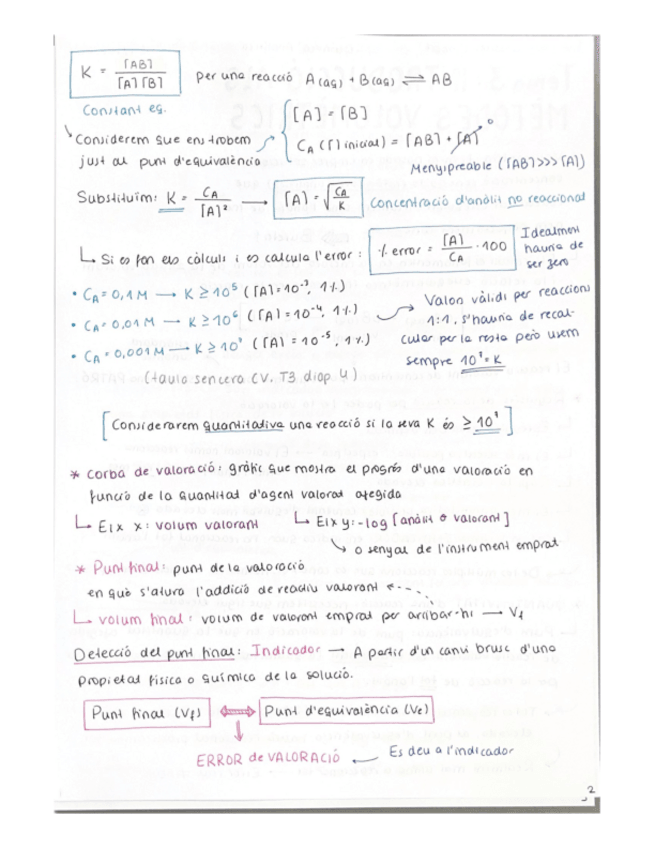 K = [AB] / [A][B] per una reacció A(aq) + B(aq) ⇌ AB
Constant eq.
[A] = [B]
Considerem que ens trobem
just al punt d'equivalència
CA ([] inicial) = [AB] + [A] → 0
Menyspreable ([AB] >>> [A])
Substituïm: K = CA / [A]² → [A] = √(CA / K) Concentració d'anàlit no reaccionat
↳ Si es fan els càlculs i es calcula l'error: % error = [A] / CA · 100 Idealment
hauria de
ser zero
• CA = 0,1 M → K ≥ 10⁵ ([A] = 10⁻³, 1%)
• CA = 0,01 M → K ≥ 10⁶ ([A] = 10⁻⁴, 1%)
• CA = 0,001 M → K ≥ 10⁷ ([A] = 10⁻⁵, 1%)
Valors vàlids per reaccions
1:1, s'hauria de recal-
cular per la resta però usem
sempre 10⁷ = K
(taula sencera CV, T3 diap 4)
[Considerarem quantitativa una reacció si la seva K és ≥ 10⁷]
* Corba de valoració: gràfic que mostra el progrés d'una valoració en
funció de la quantitat d'agent valorat afegida
↳ Eix x: volum valorant ↳ Eix y: -log [anàlit o valorant]
↳ o senyal de l'instrument emprat
* Punt final: punt de la valoració
en què s'atura l'addició de reactiu valorant
↳ volum final: volum de valorant emprat per arribar-hi → Vf
Detecció del punt final: Indicador → A partir d'un canvi brusc d'una
propietat física o química de la solució.
Punt final (Vf) ↔ Punt d'equivalència (Ve)
ERROR de VALORACIÓ ← Es deu a l'indicador
2